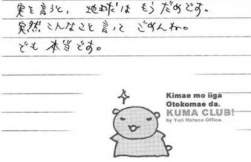 実を言うと、地球は もう だめです。
突然 こんなこと 言って ごめんね。
でも 本当です。
Kimae mo iiga
Otokomae da.
KUMA CLUB!
by Yuji Nishimura Office